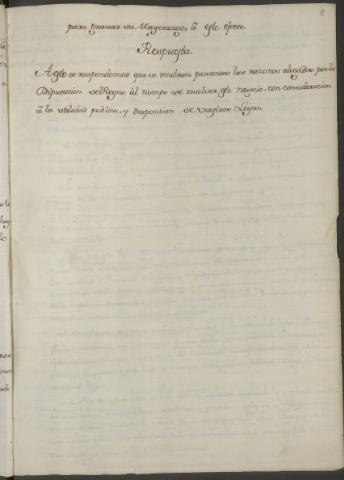 para gravar su Mayorazgo, à este efecto.
Respuesta
A esto os respondemos que se tendran presentes las razones alegadas por la
Diputacion del Reyno al tiempo de resolver este negocio, con consideracion
à la utilidad publica, y disposicion de vuestras Leyes.